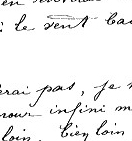 le vent
erai pas, je
amour infini m
loin, bien loin